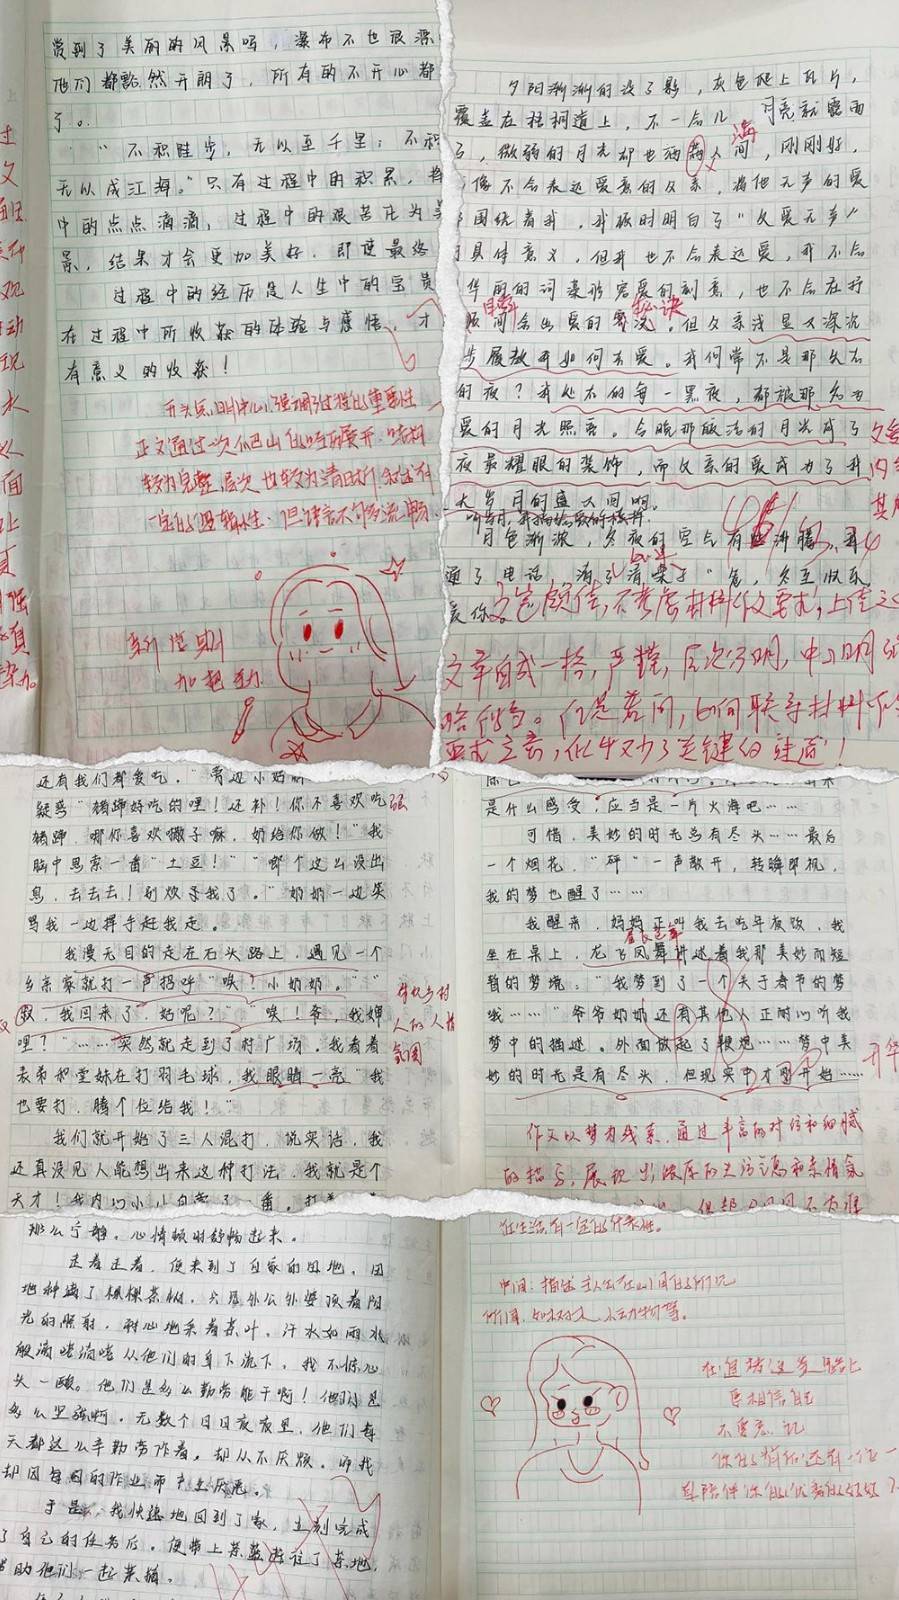 赏到了美丽的风景吗,瀑布不也很漂
他们都豁然开朗了,所有的不开心都
了。
"不积跬步,无以至千里;不积
无以成江海。"只有过程中的积累,将
中的点点滴滴,过程中的艰苦化为美
景,结果才会更加美好,即使最终
过程中的经历是人生中的宝贵
在过程中所收获的体验与感悟,才
有意义的收获!
开头点明中心,强调了过程比重要性
正文通过一次爬山的经历展开,结构
较为完整,层次也较为清晰,叙述有
一定的逻辑性,但语言不够流畅
新学期
加把劲
夕阳渐渐的没了影,灰色爬上瓦片,
覆盖在梧桐道上,不一会儿 月亮就露面
了,微弱的月光却也洒满人间,刚刚好,
像不会表达爱意的父亲,将他无声的爱
围绕着我,我顿时明白了"父爱无声"
具体意义,但我也不会表达爱,我不会
华丽的词藻形容爱的刻意,也不会在行
间会出爱的 秘诀,但父亲浅显又深沉
步履教我如何去爱。我何尝不是那么在
的夜?我处在的每一黑夜,都被那名为
爱的月光照亮。今晚那皎洁的月光成了
夜最耀眼的装饰,而父亲的爱成为了我
大岁月的盛人间啊。
月色渐浓,冬夜的空气有 沸腾,再
通了电话,清了清嗓子"爸,冬至快乐
爱你
不考虑材料作文要求,上佳之
文章自成一格,严谨,层次分明,中心明确
略恰当。但是若问,如何联系材料
要求立意,似乎又少了关键的 !
还有我们都爱吃。"旁边小姑
疑惑"猪蹄好吃的哩!还补!你不喜欢吃
猪蹄,哪你喜欢嘛子嘛,奶给你做!"我
脑中思索一番"土豆!""哪个这么没出
息,去去去!别烦我了。"奶奶一边笑
骂我一边挥手赶我走。
我漫无目的走在石头路上,遇见一个
乡亲家就打一声招呼"唉!小奶奶。""
,我回来了,奶呢?""唉!爷,我婶
哩?"……突然就走到了村广场。我看着
表弟和堂妹在打羽毛球,我眼睛一亮"我
也要打,腾个位给我!"
我们就开始了三人混打,说实话,我
还真没见人能想出来这种打法,我就是个
天才!我内心小小自夸了一番。打
乡村
人的人情
氛围
是什么感受,应当是一片火海吧……
可惜,美妙的时光总有尽头……最后
一个烟花,"砰"一声散开,转瞬即逝,
我的梦也醒了……
我醒来,妈妈正叫我去吃年夜饭,我
坐在桌上,龙飞凤舞讲述着我那美妙而短
暂的梦境:"我梦到了一个关于春节的梦
哦……"爷爷奶奶还有其他人正耐心听我
梦中的描述。外面放起了鞭炮……梦中美
妙的时光是有尽头,但现实中才刚开始……
作文以梦为线索,通过丰富的对话和细腻
的描写,展现出浓厚的生活气息和亲情氛
那么宁静,心情顿时舒畅起来。
走着走着,便来到了自家的田地。田
地种满了棵棵茶树,只见外公外婆顶着阳
光的照射,耐心地采着茶叶。汗水如雨水
般滴嗒滴嗒从他们的身下流下,我不惊心
头一酸。他们是多么勤劳能干啊!他们是
多么坚强啊。无数个日日夜夜里,他们每
天都这么辛勤劳作着,却从不厌烦。而我
却因每日的作业而产生厌恶。
于是,我快速地回到了家,立刻完成
了自己的任务后,便带上茶篮前往了茶地,
帮助他们一起采摘。
中间:描述主人公在山间的所见
所闻,如 、小动物等。
在追梦这条路上
要相信自己
不要忘记
你的背后还有一位
在陪伴你